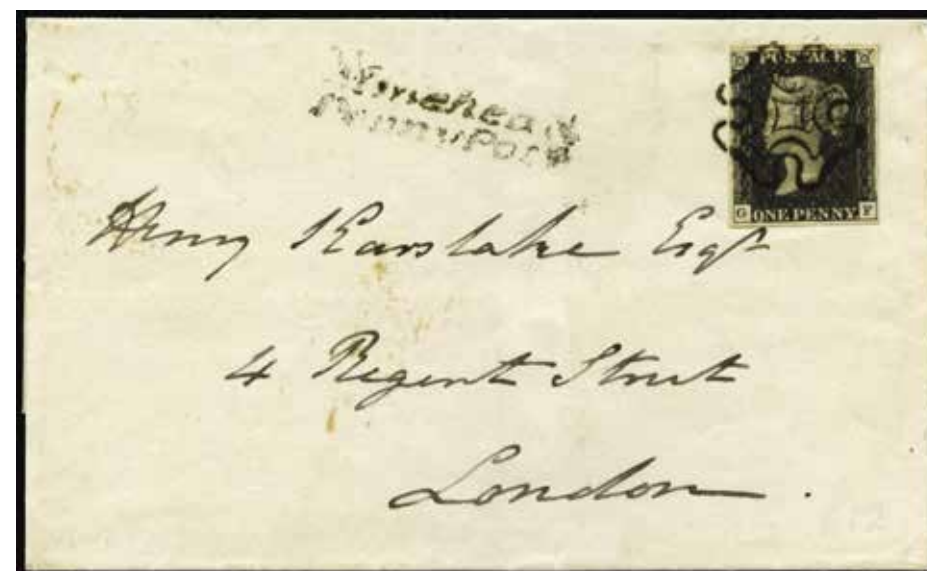 Minehead
Penny Post
POSTAGE
G ONE PENNY F
Henry Karslake Esqr
4 Regent Street
London.